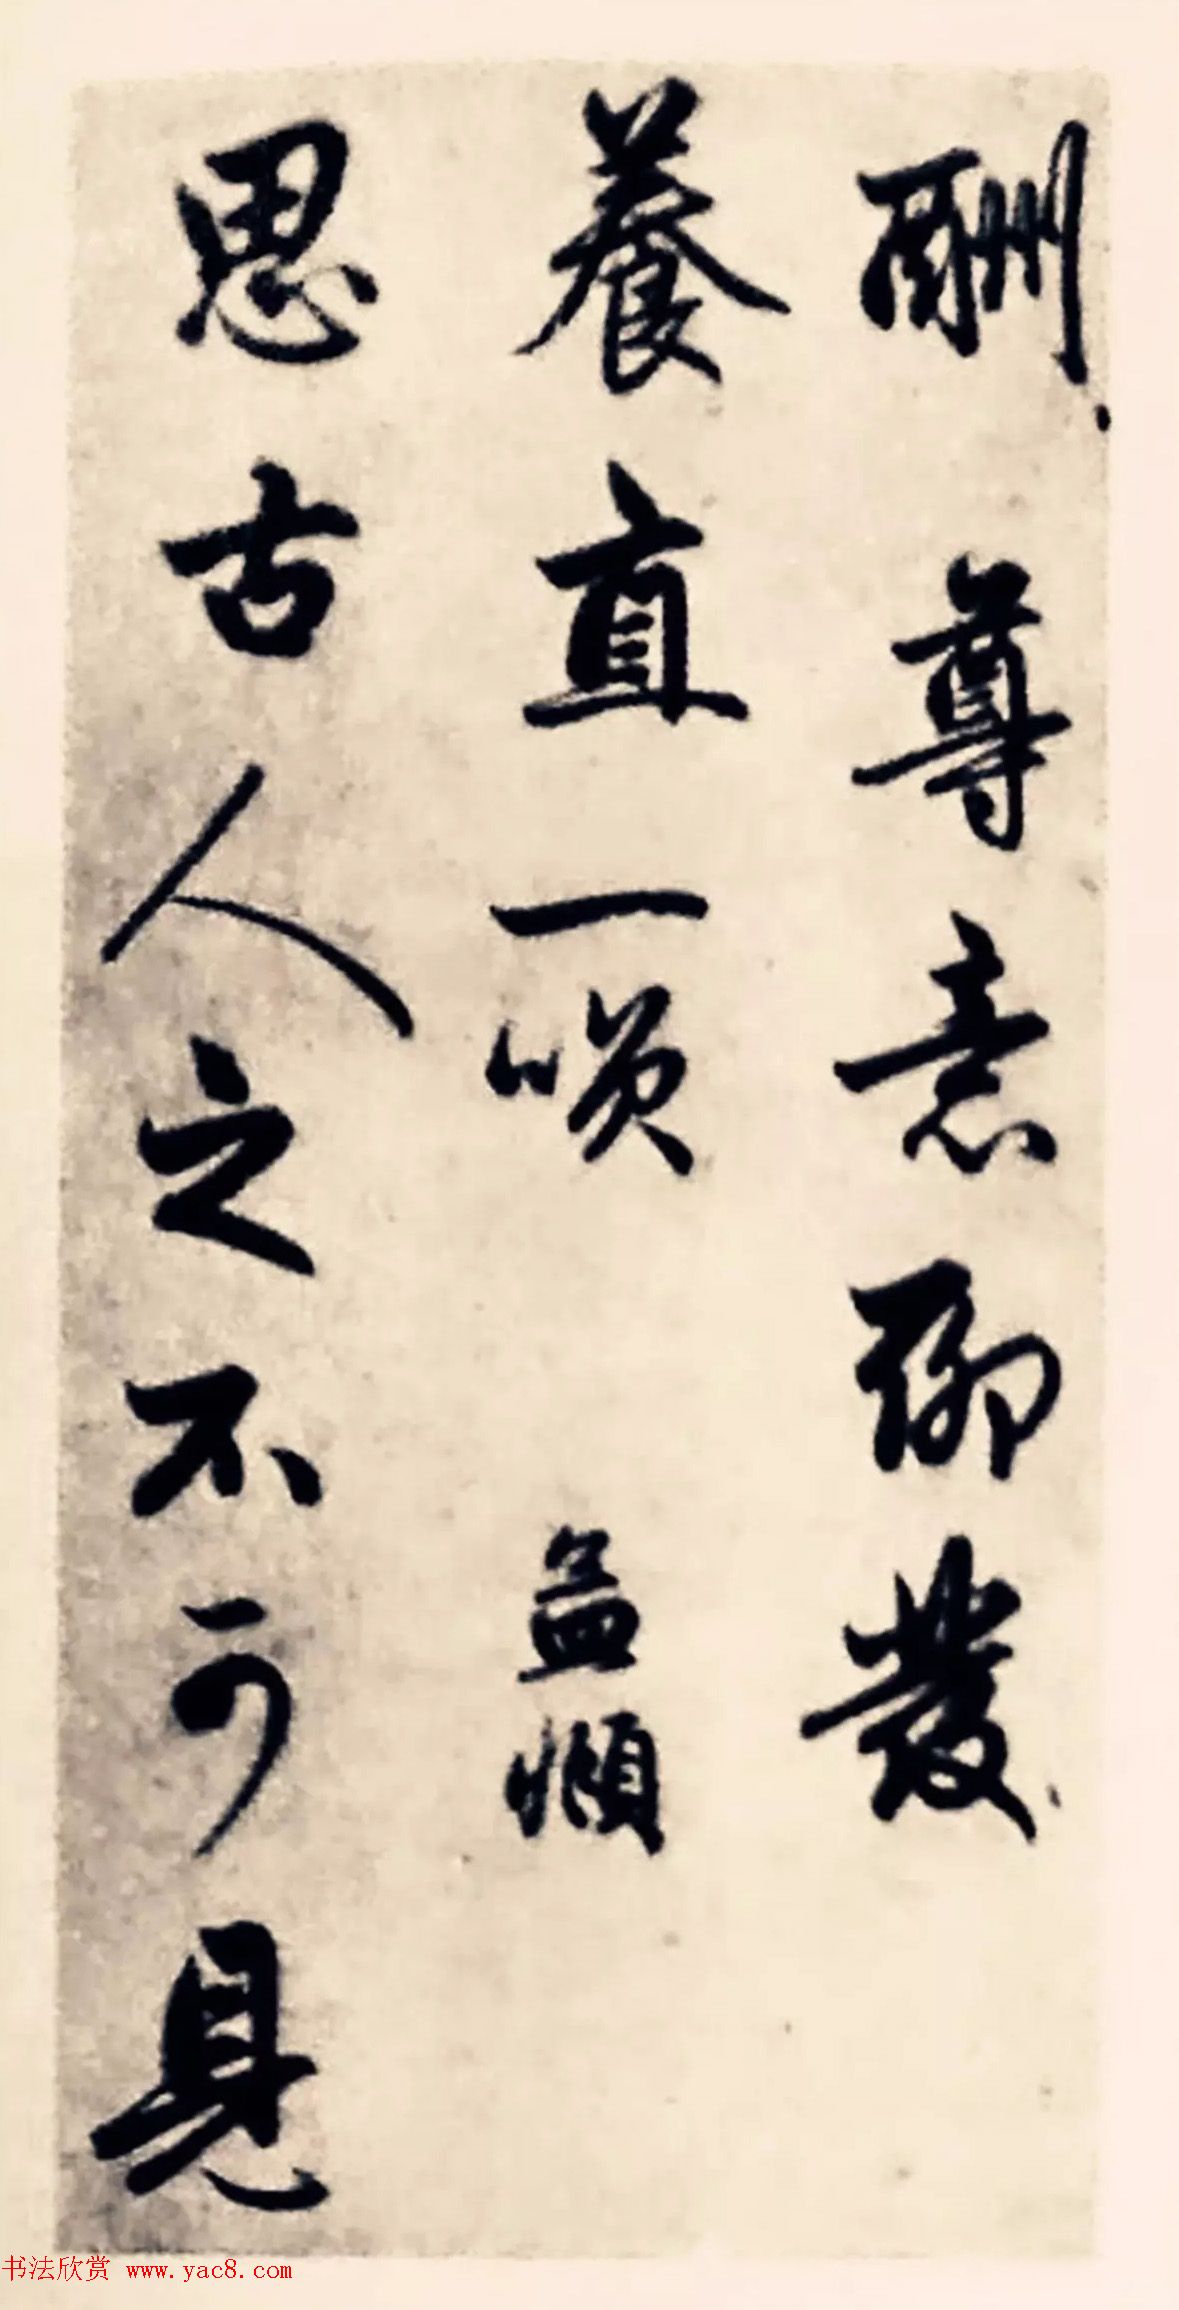 酬尊意聊發
養直一咲孟頫
思古人之不可見
书法欣赏 www.yac8.com